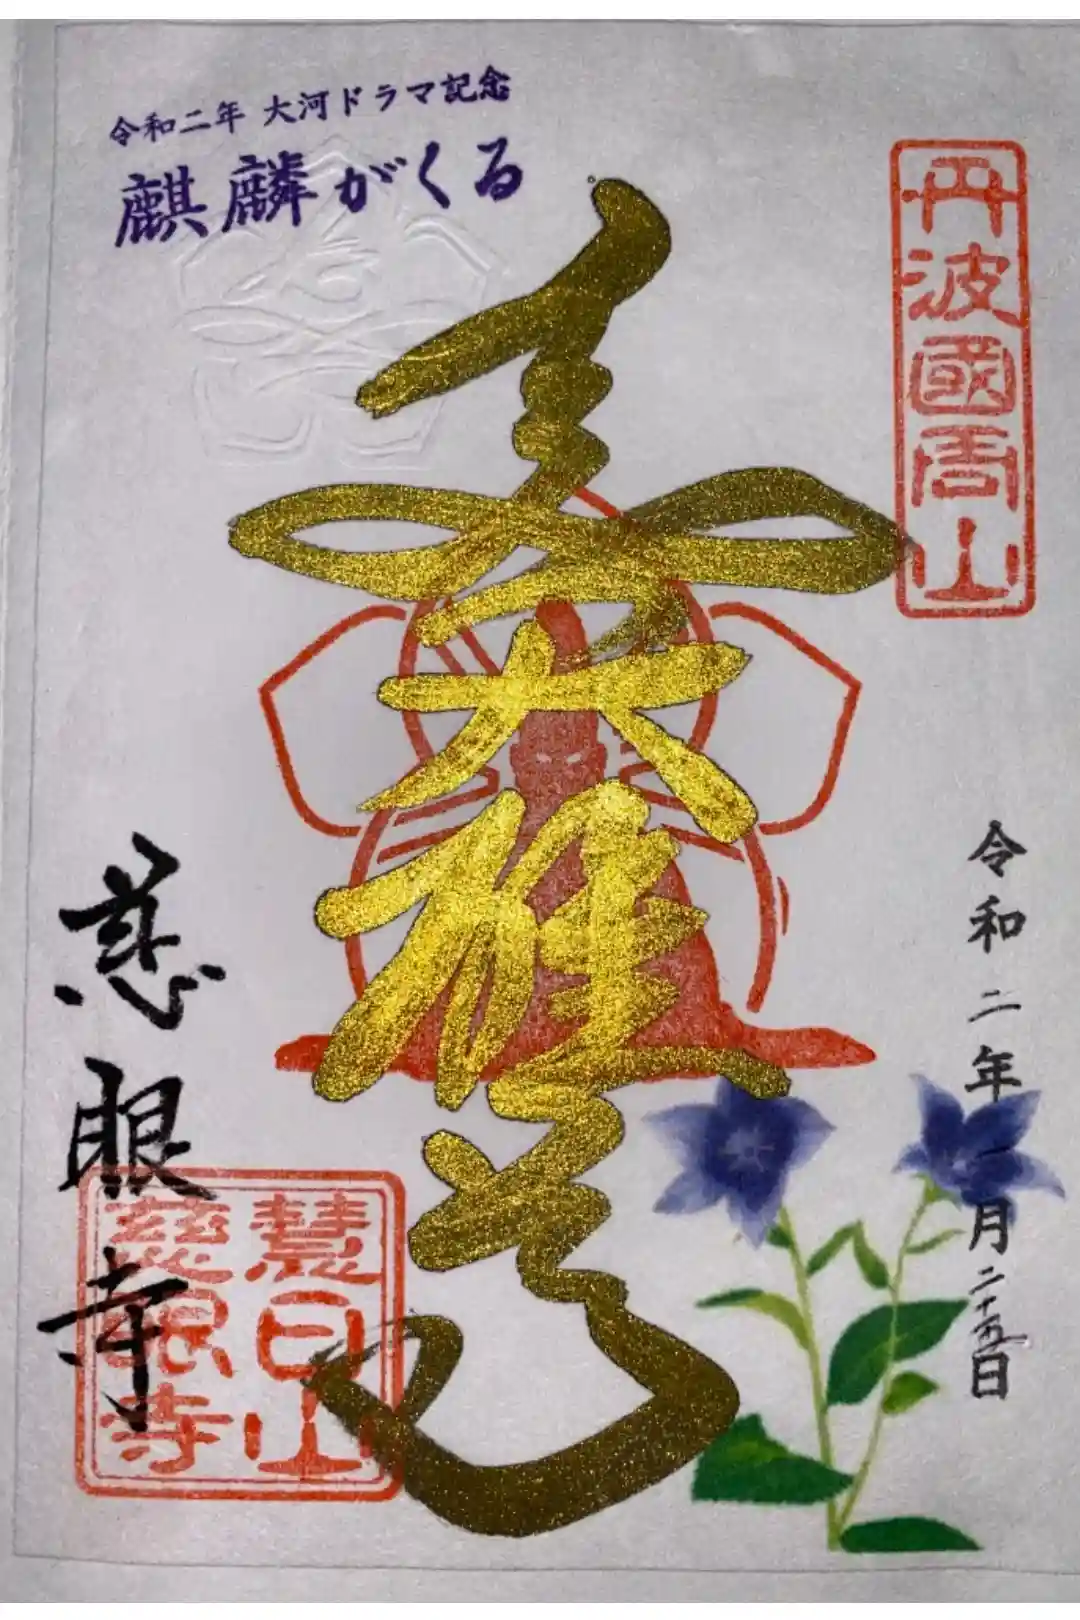 令和二年 大河ドラマ記念
麒麟がくる
丹波國周山
令和二年一月二十五日
大雄
慈眼寺
慧日山
慈眼寺